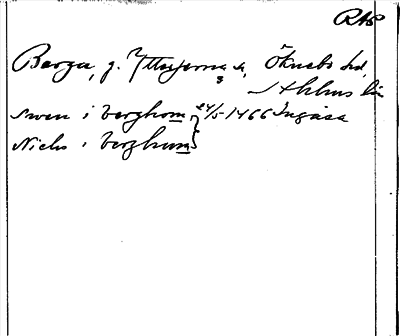 RAP
Berga, g. Ytterjerna sn, Öknebo hd,
Sthlms län
Swen i berghom 24/5 1466 Ingåsa
Niels i berghum